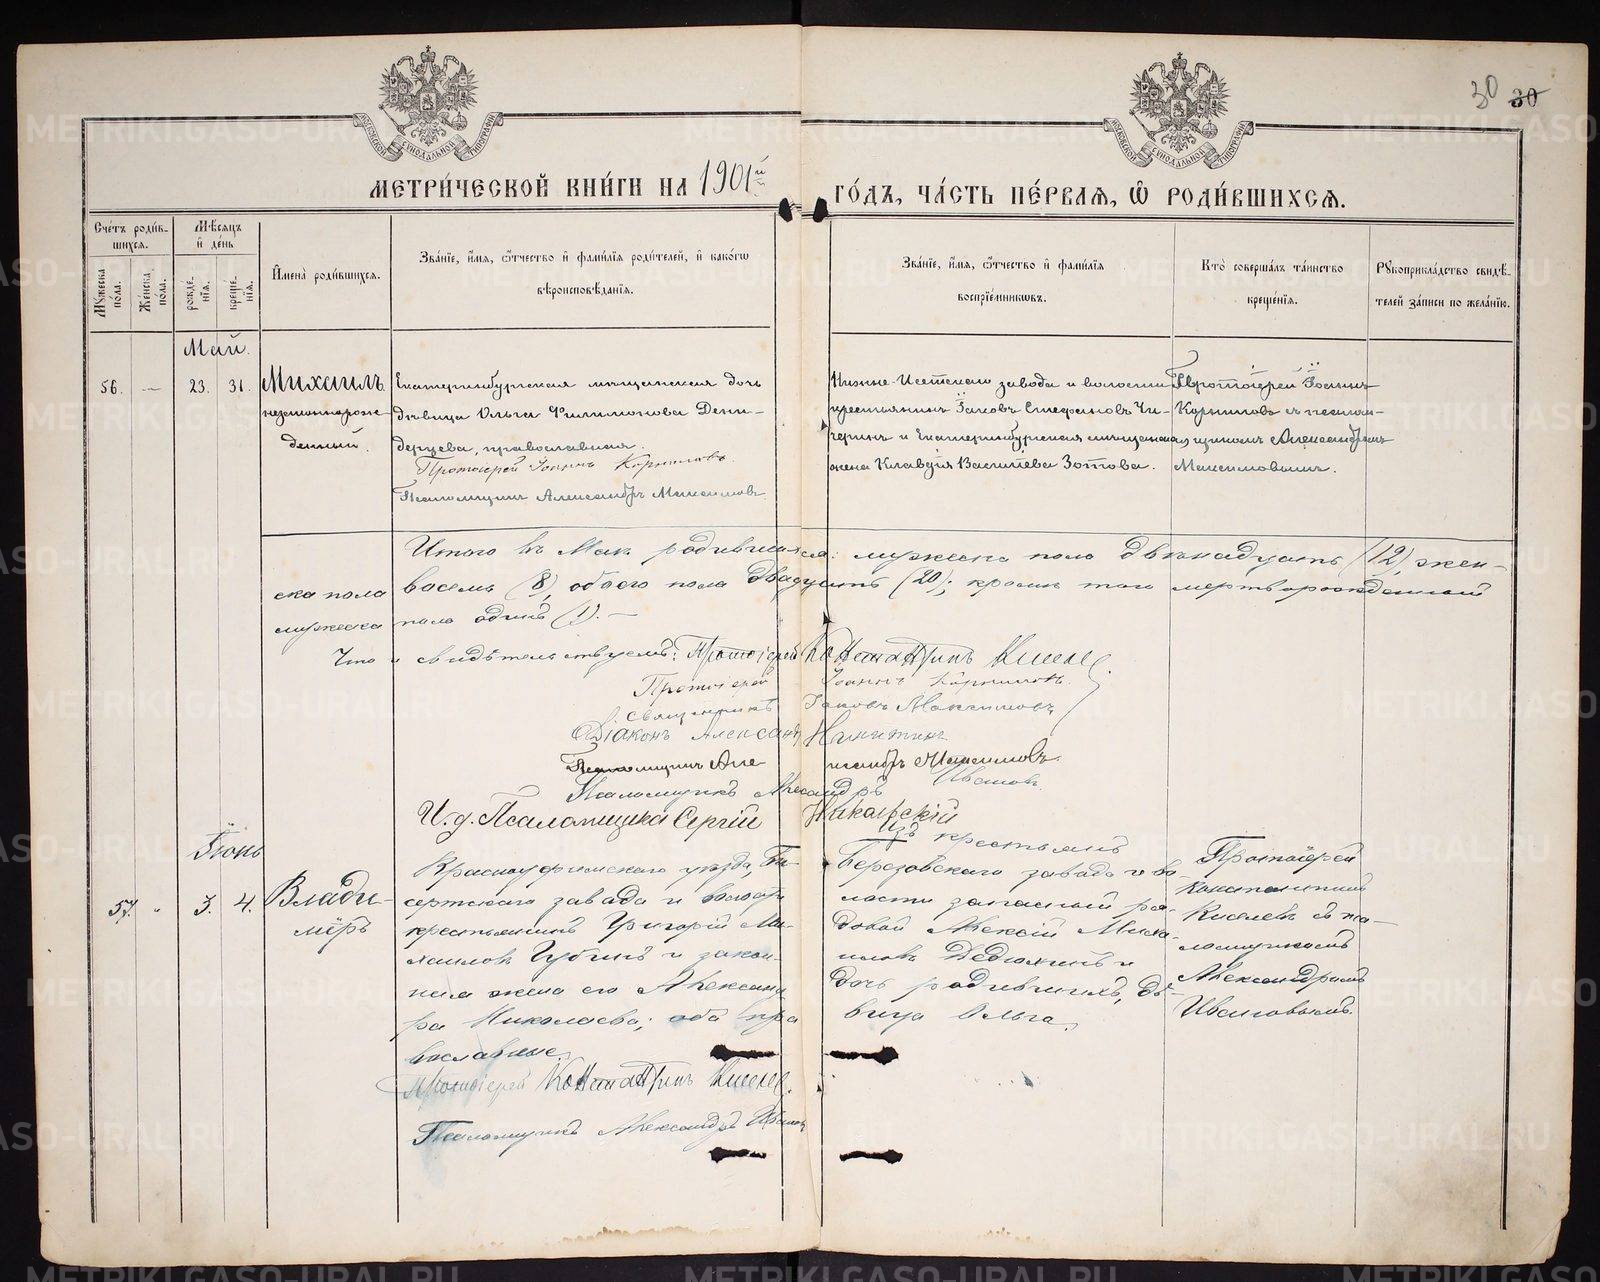 30 30
МЕТРИ́ЧЕСКОЙ КНИ́ГИ НА 1901й
ГО́ДЪ, ЧА́СТЬ ПЕ́РВАЯ, Ѡ РОДИ́ВШИХСЯ.
Сче́тъ роди́в-
шихся.
Му́жеска по́ла.
Же́нска по́ла.
Мѣ́сяцъ
и де́нь
рожде́нїя.
креще́нїя.
Имена̀ роди́вшихся.
Зва́нїе, и́мя, ѻ́тчество и фами́лїя роди́телей, и како́гѡ
вѣроисповѣ́данїя.
Зва́нїе, и́мя, ѻ́тчество и фами́лїя
воспрїе́мниковъ.
Кто̀ соверша́лъ та́инство
креще́нїя.
Рꙋкоприкла́дство свидѣ́-
телей за́писи по жела́нїю.
Май.
56. — 23. 31. Михаилъ
незаконнорож-
денный.
Екатеринбургская мѣщанская дочь
дѣвица Ольга Филимонова
православная.
Протоіерей Іоаннъ Корниловъ.
Псаломщикъ Александръ Максимовъ.
Нижне-Исетскаго завода и волости
крестьянинъ Іаковъ Стефановъ Чи-
геринъ и Екатеринбургская мѣщанская
жена Клавдія Василіева Зотова.
Протоіерей Іоаннъ
Корниловъ съ псалом-
щикомъ Александромъ
Максимовымъ.
Итого въ Маѣ родившихся: мужеска пола двѣнадцать (12), жен-
ска пола восемь (8), обоего пола двадцать (20); кромѣ того мертворожденный
мужеска пола одинъ (1). —
Что и свидѣтельствуемъ: Протоіерей Константинъ
Протоіерей Іоаннъ Корниловъ.
Священникъ Іаковъ Максимовъ
Діаконъ Александръ Никитинъ
Псаломщикъ Александръ Максимовъ.
Псаломщикъ Александръ Ивановъ.
И. д. Псаломщика Сергій Никольскій
Іюнь
57. " 3. 4. Влади-
міръ
Красноуфимскаго уѣзда, Би-
сертскаго завода и волости
крестьянинъ Григорій Ми-
хаиловъ Губинъ и закон-
ная жена его Александ-
ра Николаева; оба пра-
вославные.
Протоіерей Константинъ
Псаломщикъ Александръ Ивановъ
Изъ крестьянъ
Березовскаго завода и во-
лости запасный ря-
довой Алексій Миха-
иловъ Дедюхинъ и
дочь родившихъ, дѣ-
вица Ольга.
Протоіерей
Константинъ
Киселевъ съ пса-
ломщикомъ
Александромъ
Ивановымъ.
METRIKI.GASO-URAL.RU